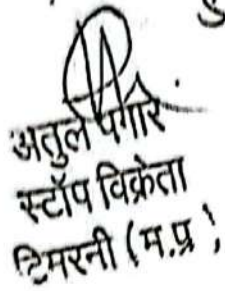 अतुल पगारे
स्टॉप विक्रेता
टिमरनी (म.प्र.)